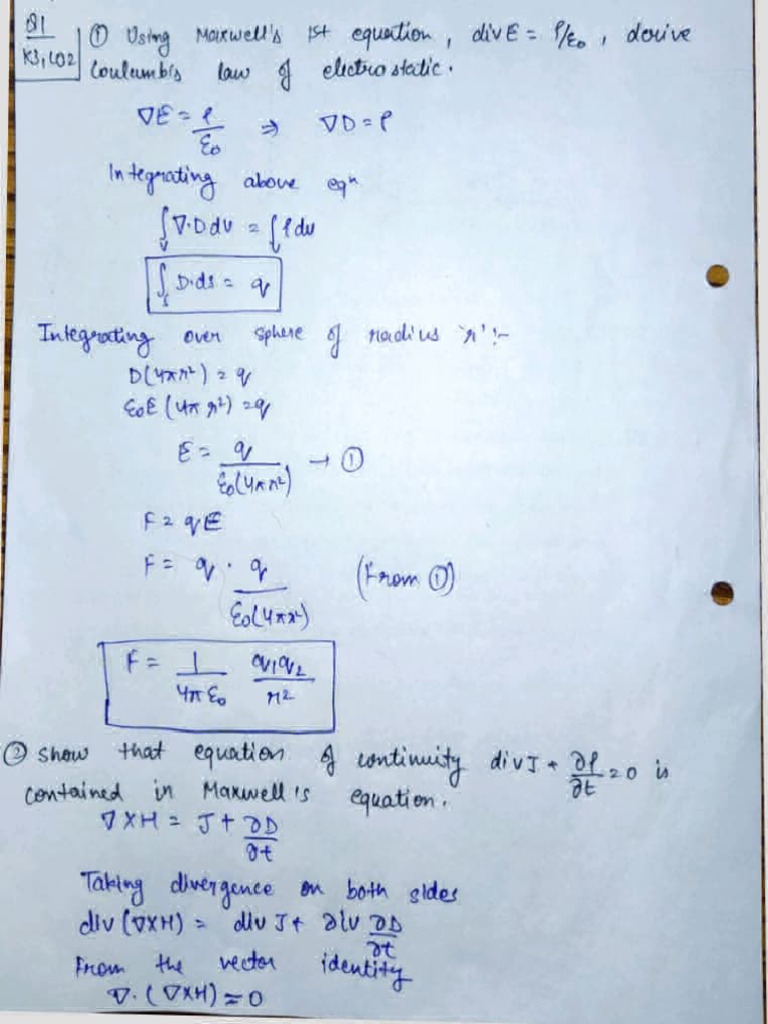 Q1
K3, CO2
① Using Maxwell's 1st equation, div E = ρ/ε₀, derive
Coulumb's law of electrostatic.
∇E = ρ/ε₀ ⇒ ∇D = ρ
Integrating above eqⁿ
∫ᵥ ∇·D dv = ∫ᵥ ρ dv
∫ₛ D·ds = q
Integrating over sphere of radius 'r' :-
D(4πr²) = q
ε₀E (4πr²) = q
E = q/ε₀(4πr²) → ①
F = qE
F = q · q/ε₀(4πr²) (From ①)
F = 1/4πε₀ q₁q₂/r²
② Show that equation of continuity div J + ∂ρ/∂t = 0 is
contained in Maxwell's equation.
∇XH = J + ∂D/∂t
Taking divergence on both sides
div (∇XH) = div J + div ∂D/∂t
From the vector identity
∇. (∇XH) = 0